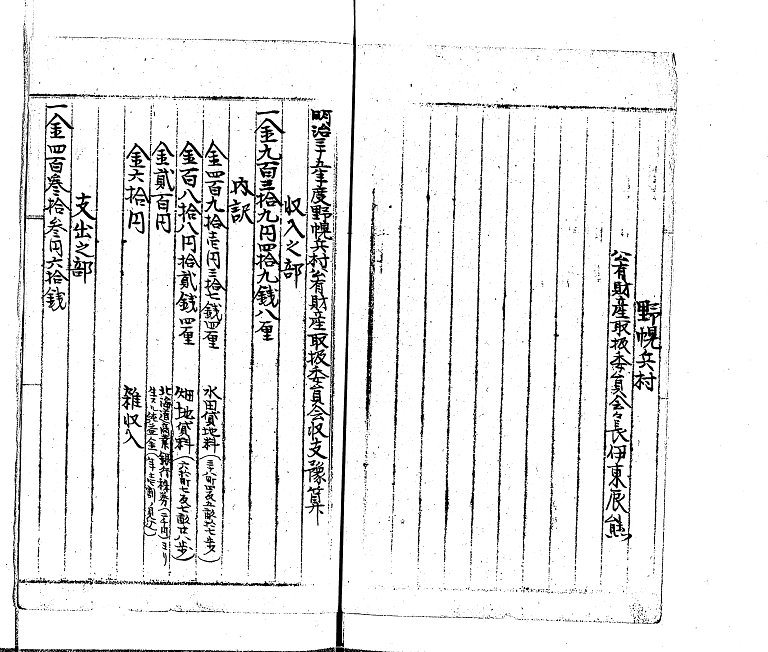 野幌兵村
公有財産取扱委員会々長伊東辰熊
明治三十五年度野幌兵村公有財産取扱委員会収支豫算
収入之部
一金九百三拾九円四拾九銭八厘
内訳
金四百九拾壱円三拾七銭四厘 水田貸地料
金百八拾八円拾貳銭四厘 畑地貸料
金貳百円 北海道商業銀行株券
金六拾円 雑収入
支出之部
一金四百叁拾叁円六拾銭